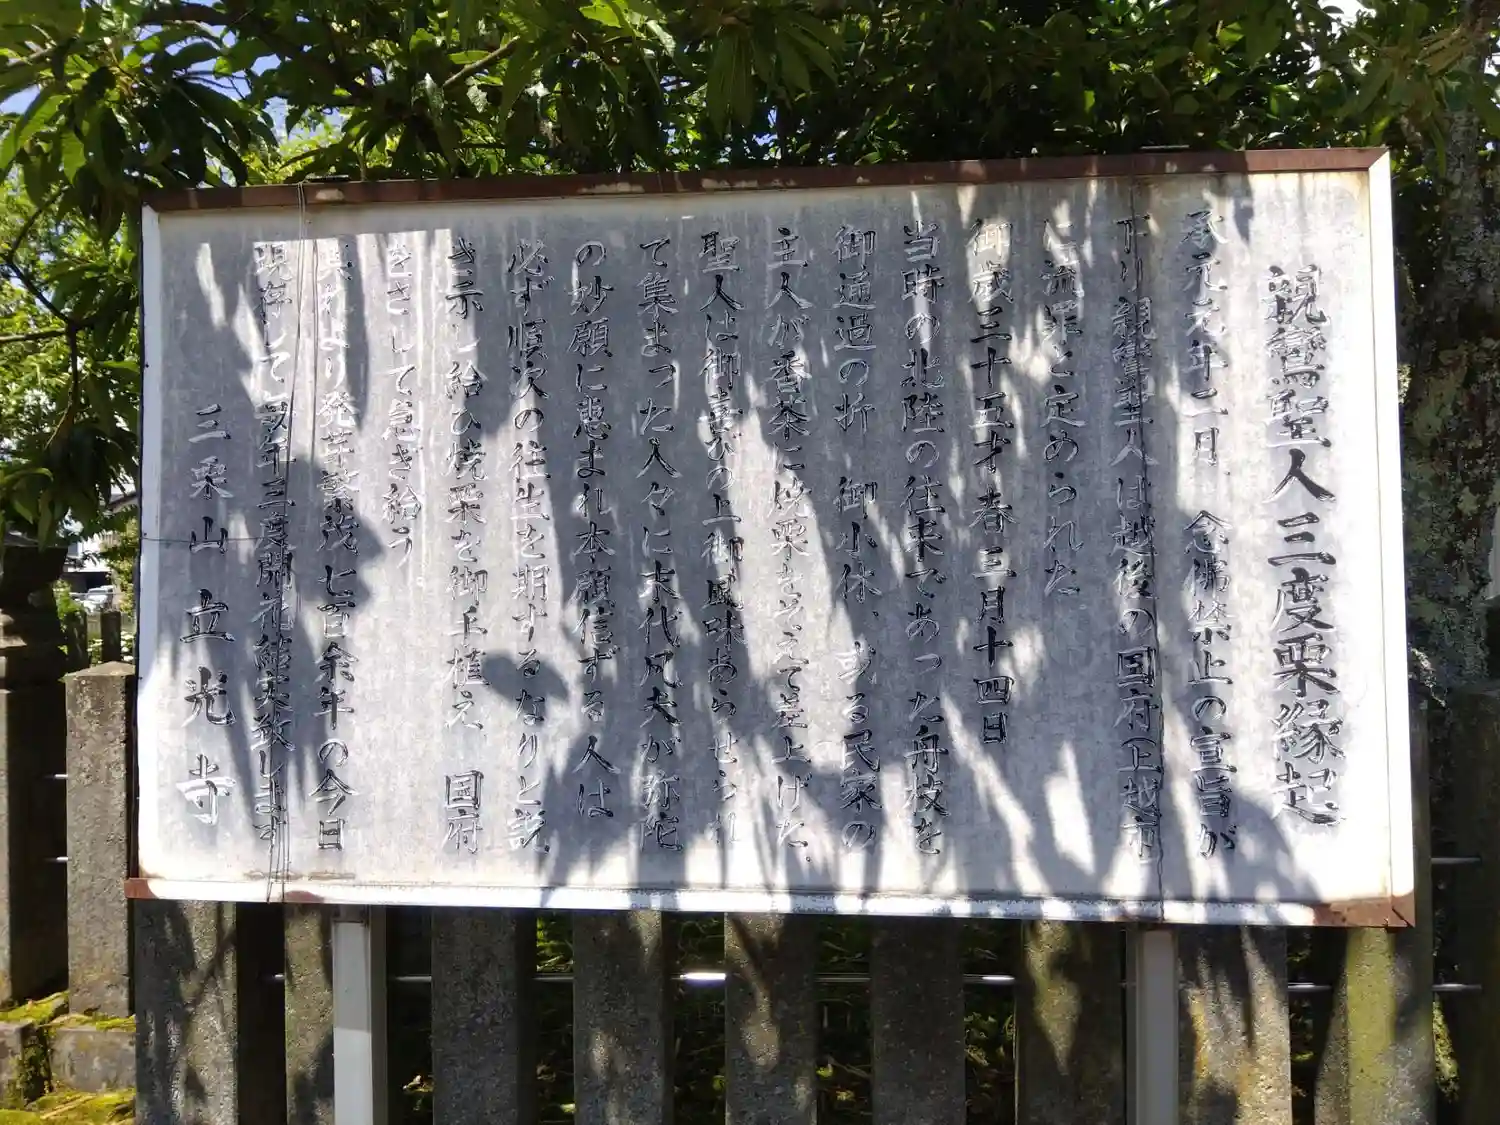 親鸞聖人三度栗縁起
承元元年二月 念佛禁止の宣旨が
下り親鸞聖人は越後の国府(上越市
に流罪と定められた
御歳三十五才春三月十四日
当時の北陸の往来であった舟枝を
御通過の折 御小休、或る民家の
主人が香茶に焼栗をそえて差上げた。
聖人は御喜びの上御風味あらせられ
て集まった人々に末代凡夫が弥陀
の妙願に恵まれ本願信ずる人は
必ず順次の往生を期するなりと説
き示し給ひ焼栗を御手植え 国府
をさして急ぎ給う。
其れより発芽繁茂七百余年の今日
現存して毎年三度開花結実致します
三栗山立光寺